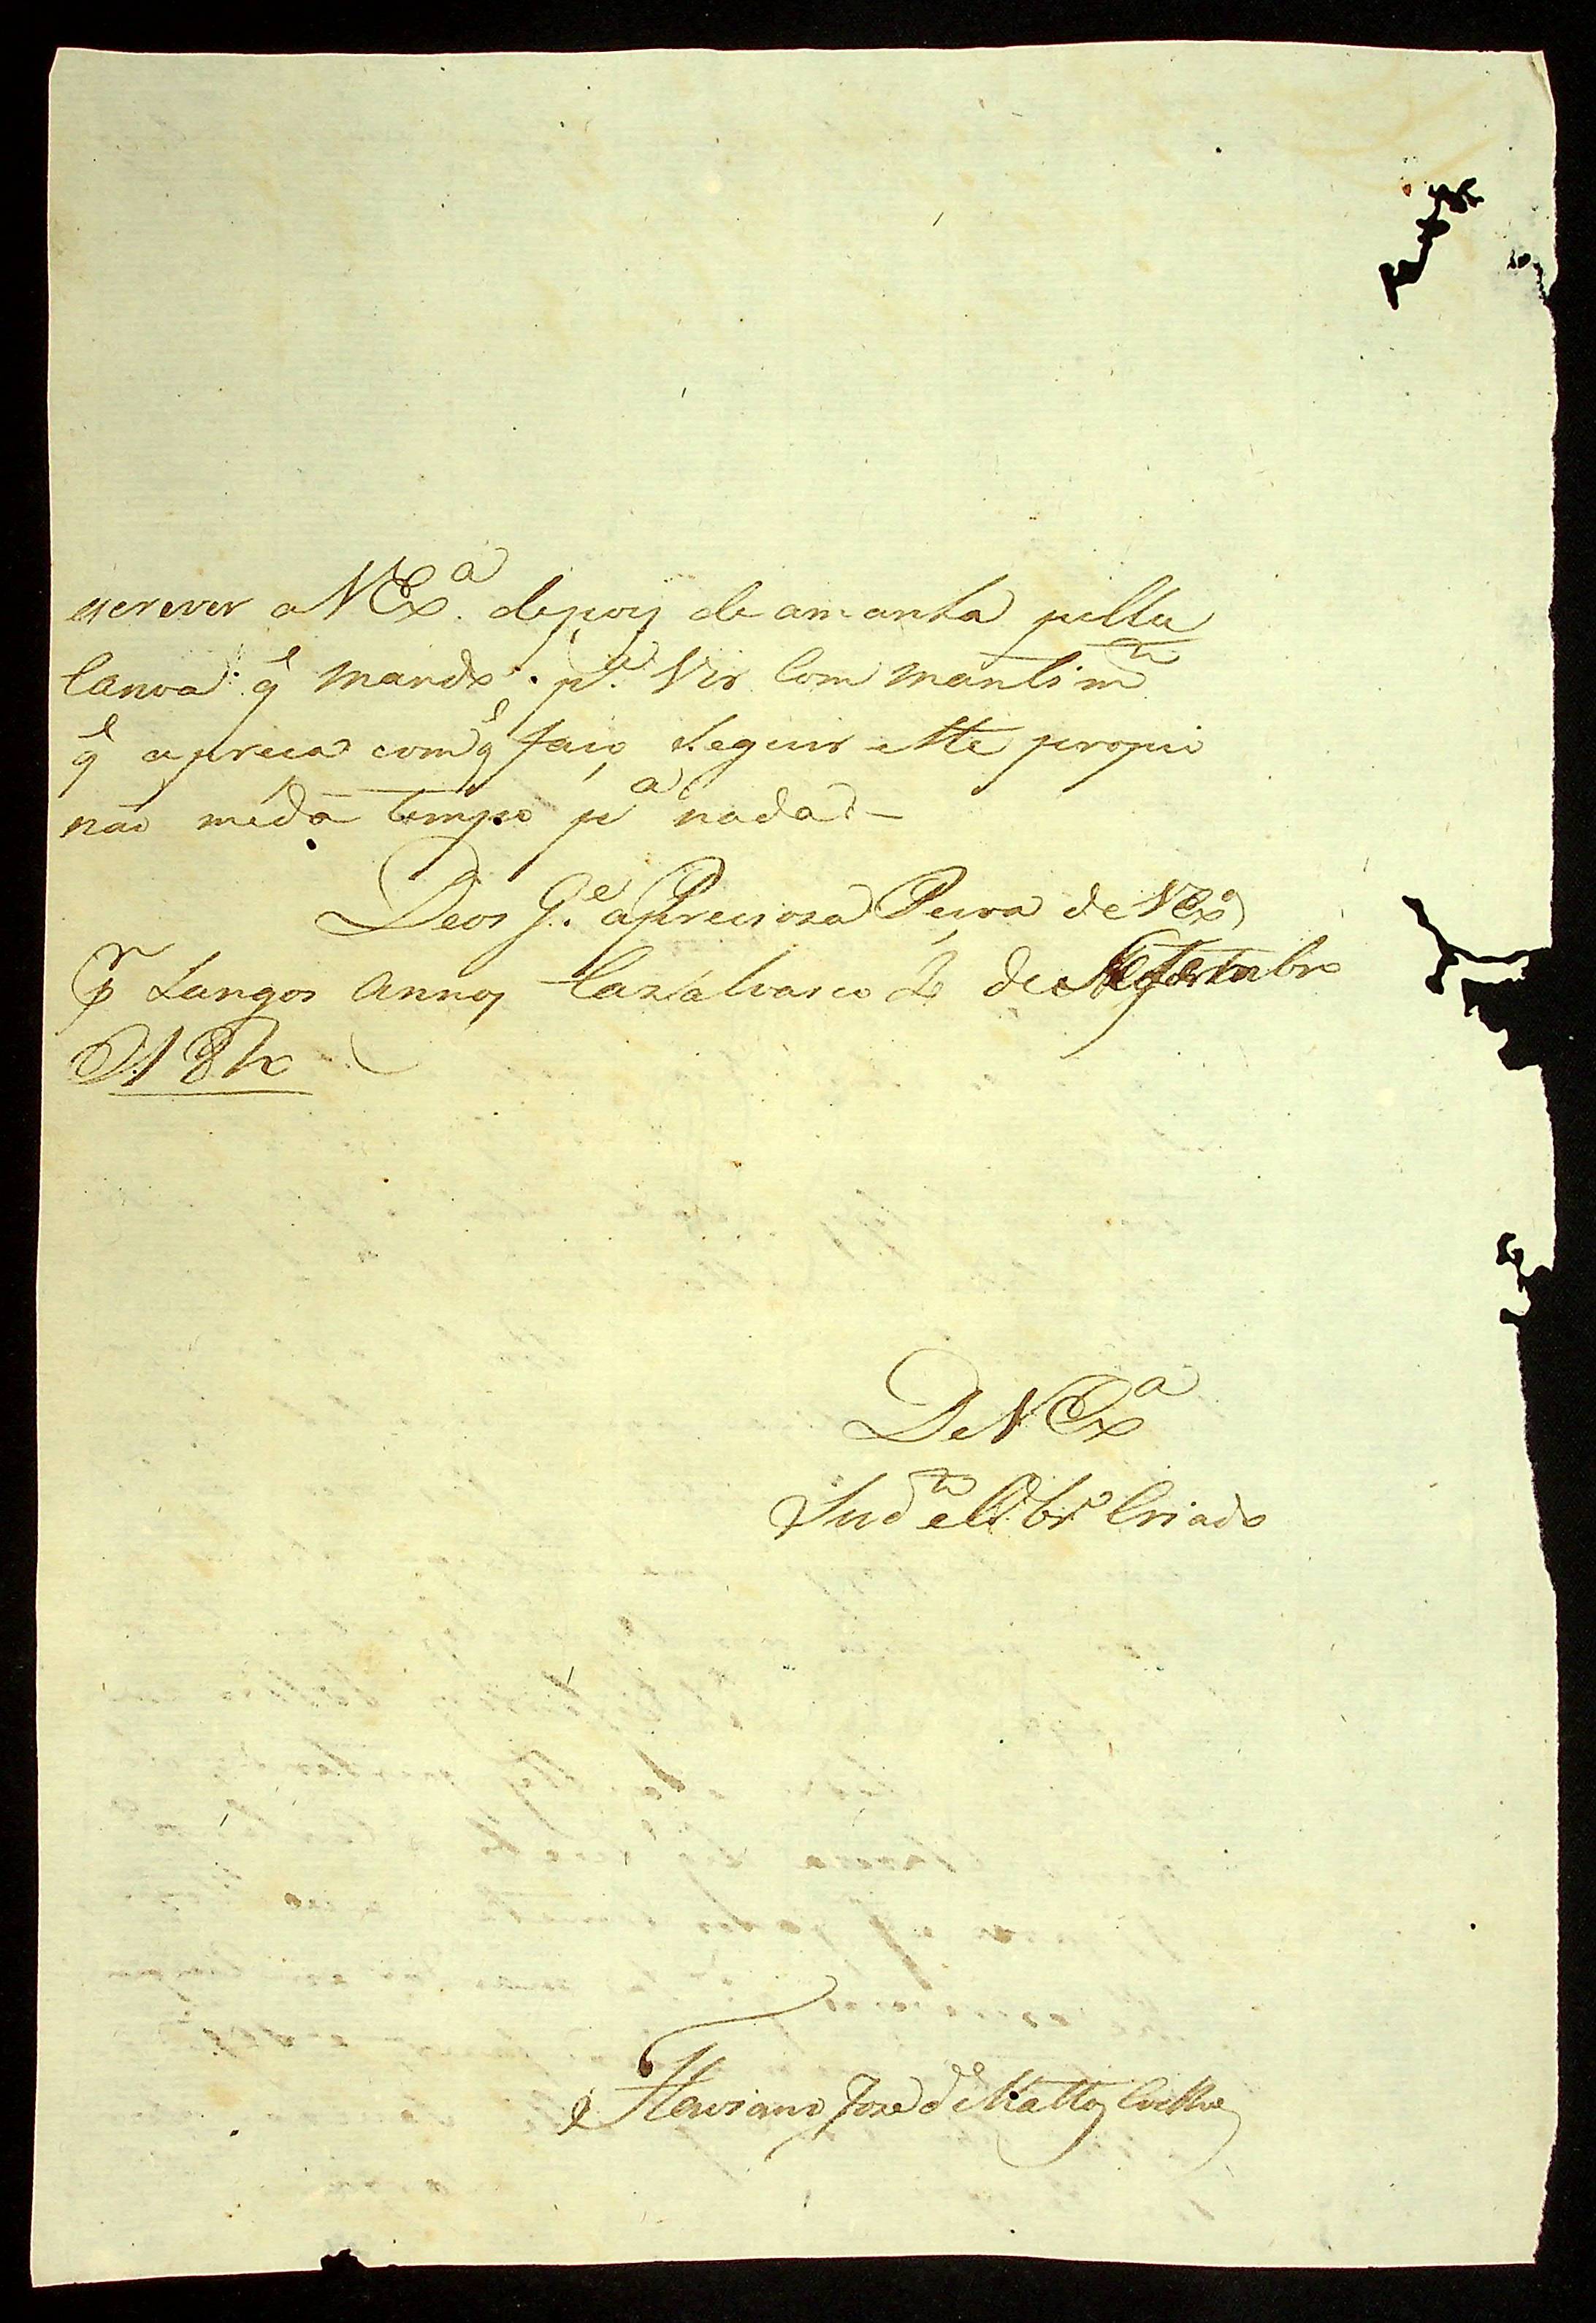 escrever a VExª. depoys de amanha pella
Canoa q̃ mando pª. Vir Com mantimto
q̃ apreca com q̃ faço Seguir este propio
não me dá tempo pª nada –
Deos Ge. a Preciosa Peçoa de VExª
Pr Largos Annos Cazalvasco 2 de Setembro
D 18
De VExª
Subdto e Obro Criado
Flaviano Joze de Mattos Coelho